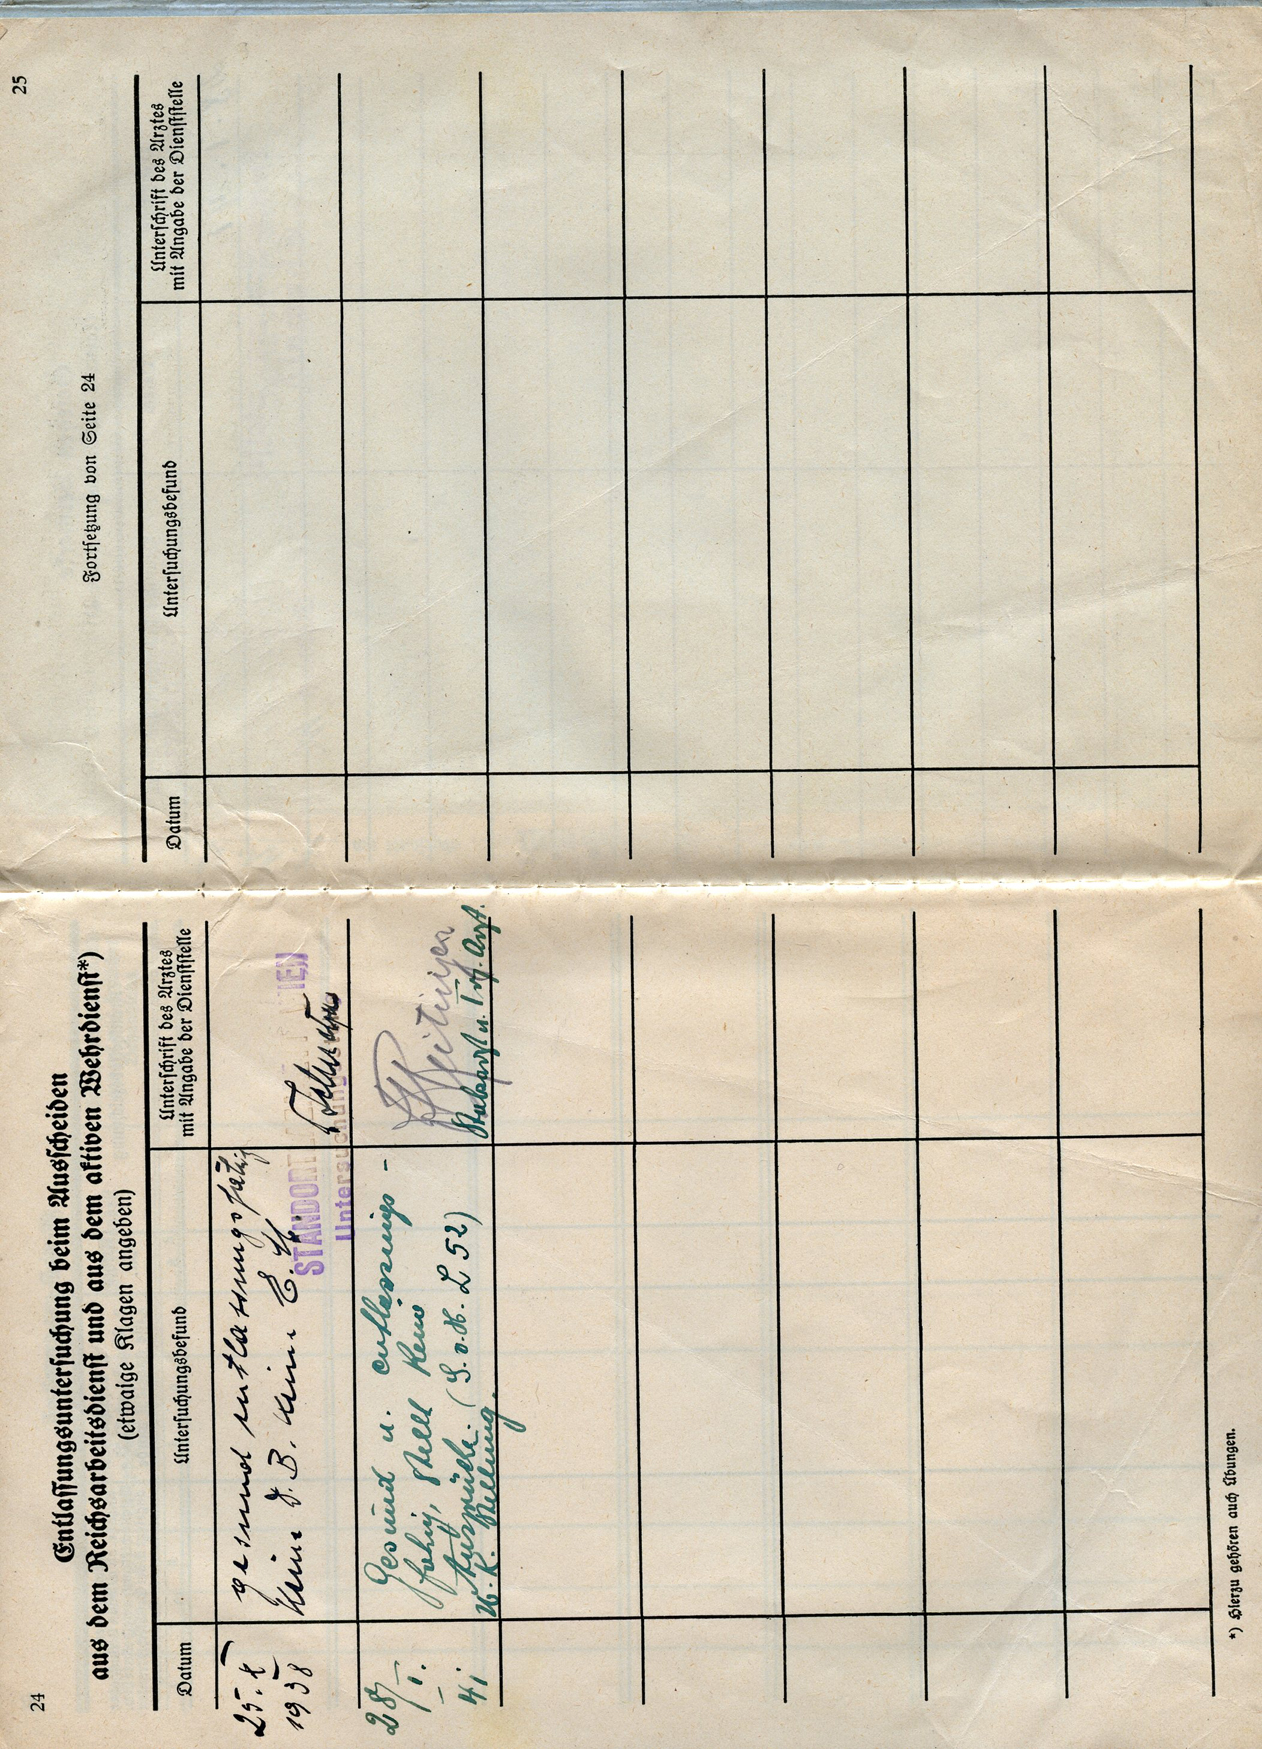 24
Entlassungsuntersuchung beim Ausscheiden
aus dem Reichsarbeitsdienst und aus dem aktiven Wehrdienst*)
(etwaige Klagen angeben)
Datum
Untersuchungsbefund
Unterschrift des Arztes
mit Angabe der Dienststelle
25. X
1938
gesund entlassungsfähig
keine D. B. keine E. H.
STANDORT
IEN
Untersuchungs
28/
I.
41
Gesund u. entlassungs-
fähig, stellt keine
Ansprüche. (S.v.H. L 52)
W.K. Stellung.
Stabsarzt u. Trp. Arzt.
*) Hierzu gehören auch Übungen.
25
Fortsetzung von Seite 24
Datum
Untersuchungsbefund
Unterschrift des Arztes
mit Angabe der Dienststelle